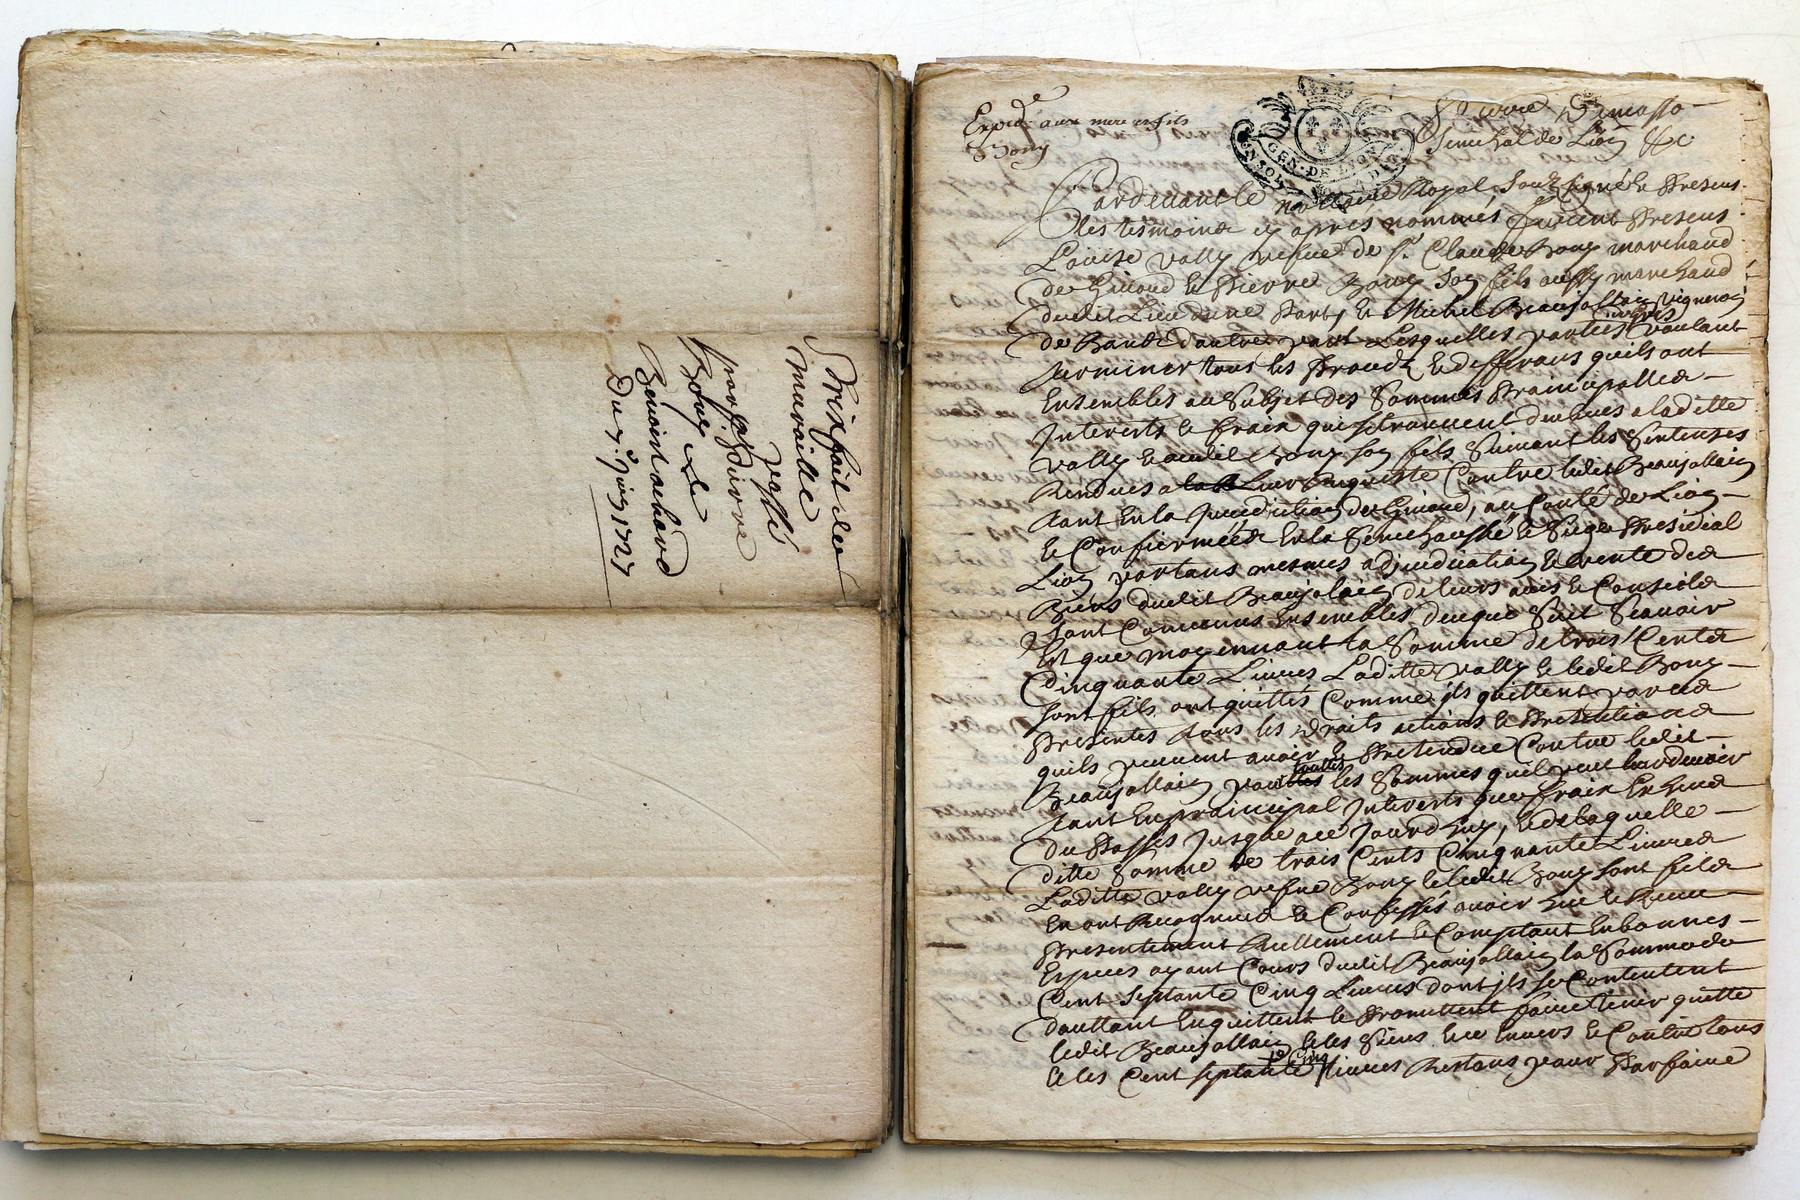 Prixfait de
muraille
passé
par Pierre
Bony a
Benoist achard
Du 7.e Juin 1727
Expédié aux mere et fils
Bony
GEN. DE LYON
Senechal de Lion &c
Pardevant le nottaire Royal Soubsigné & Presens
les tesmoins cy apres nommés furent Presens
Louise vally vefve de Sr. Claude Bony marchand
de & Pierre Bony son fils aussy marchand
dudit Lieu d'une Part, & Michel Beaujollain vigneron
de d'autre part Lesquelles parties voulant
terminer tous les Procedz & differans quils ont
Ensembles au Subjet des Sommes Principalles
Interests & fraix qui se trouvent dheues a laditte
vally & audit Bony son fils Suivant les Sentenses
Rendues a leur Requiste Contre ledit Beaujollain
tant En la Jurediction de au Conté de Lion
& Confiermées En la Senechaussée & Siege Presidial
Lion portans mesmes adjudication & vente des
Biens dudit Beaujolain de leurs avis & Conseils
Sont Convenus Ensembles de ce que Suit Scavoir
Est que moyennant la Somme de trois Cents
Cinquante Livres Laditte vally & ledit Bony
sont fils ont quittés Comme ils quittent par ces
Presentes tous les droits actions & Pretentions
quils peuvent avoir & Pretendre Contre ledit
Beaujollain pour touttes les Sommes quil peut leur devoir
tant En principal Interests que fraix
du Passés Jusque a ce Jourdhuy, & de laquelle
ditte Somme de trois Cents Cinquante Livres
Laditte vally vefve Bony & ledit Bony sont fils
En ont Recognus & Confessés avoir heu & Receu
Presentement Reellement & Comptant En bonnes
Especes ayant Cours dudit Beaujollain la Somme de
Cent Septante Cinq Livres dont ils se Contentent
d'auttant En quittent & Promettent faire tenir quitte
ledit Beaujollain & les Siens Envers & Contre tous
& les Cent septante & Cinq livres Restans pour Parfaire